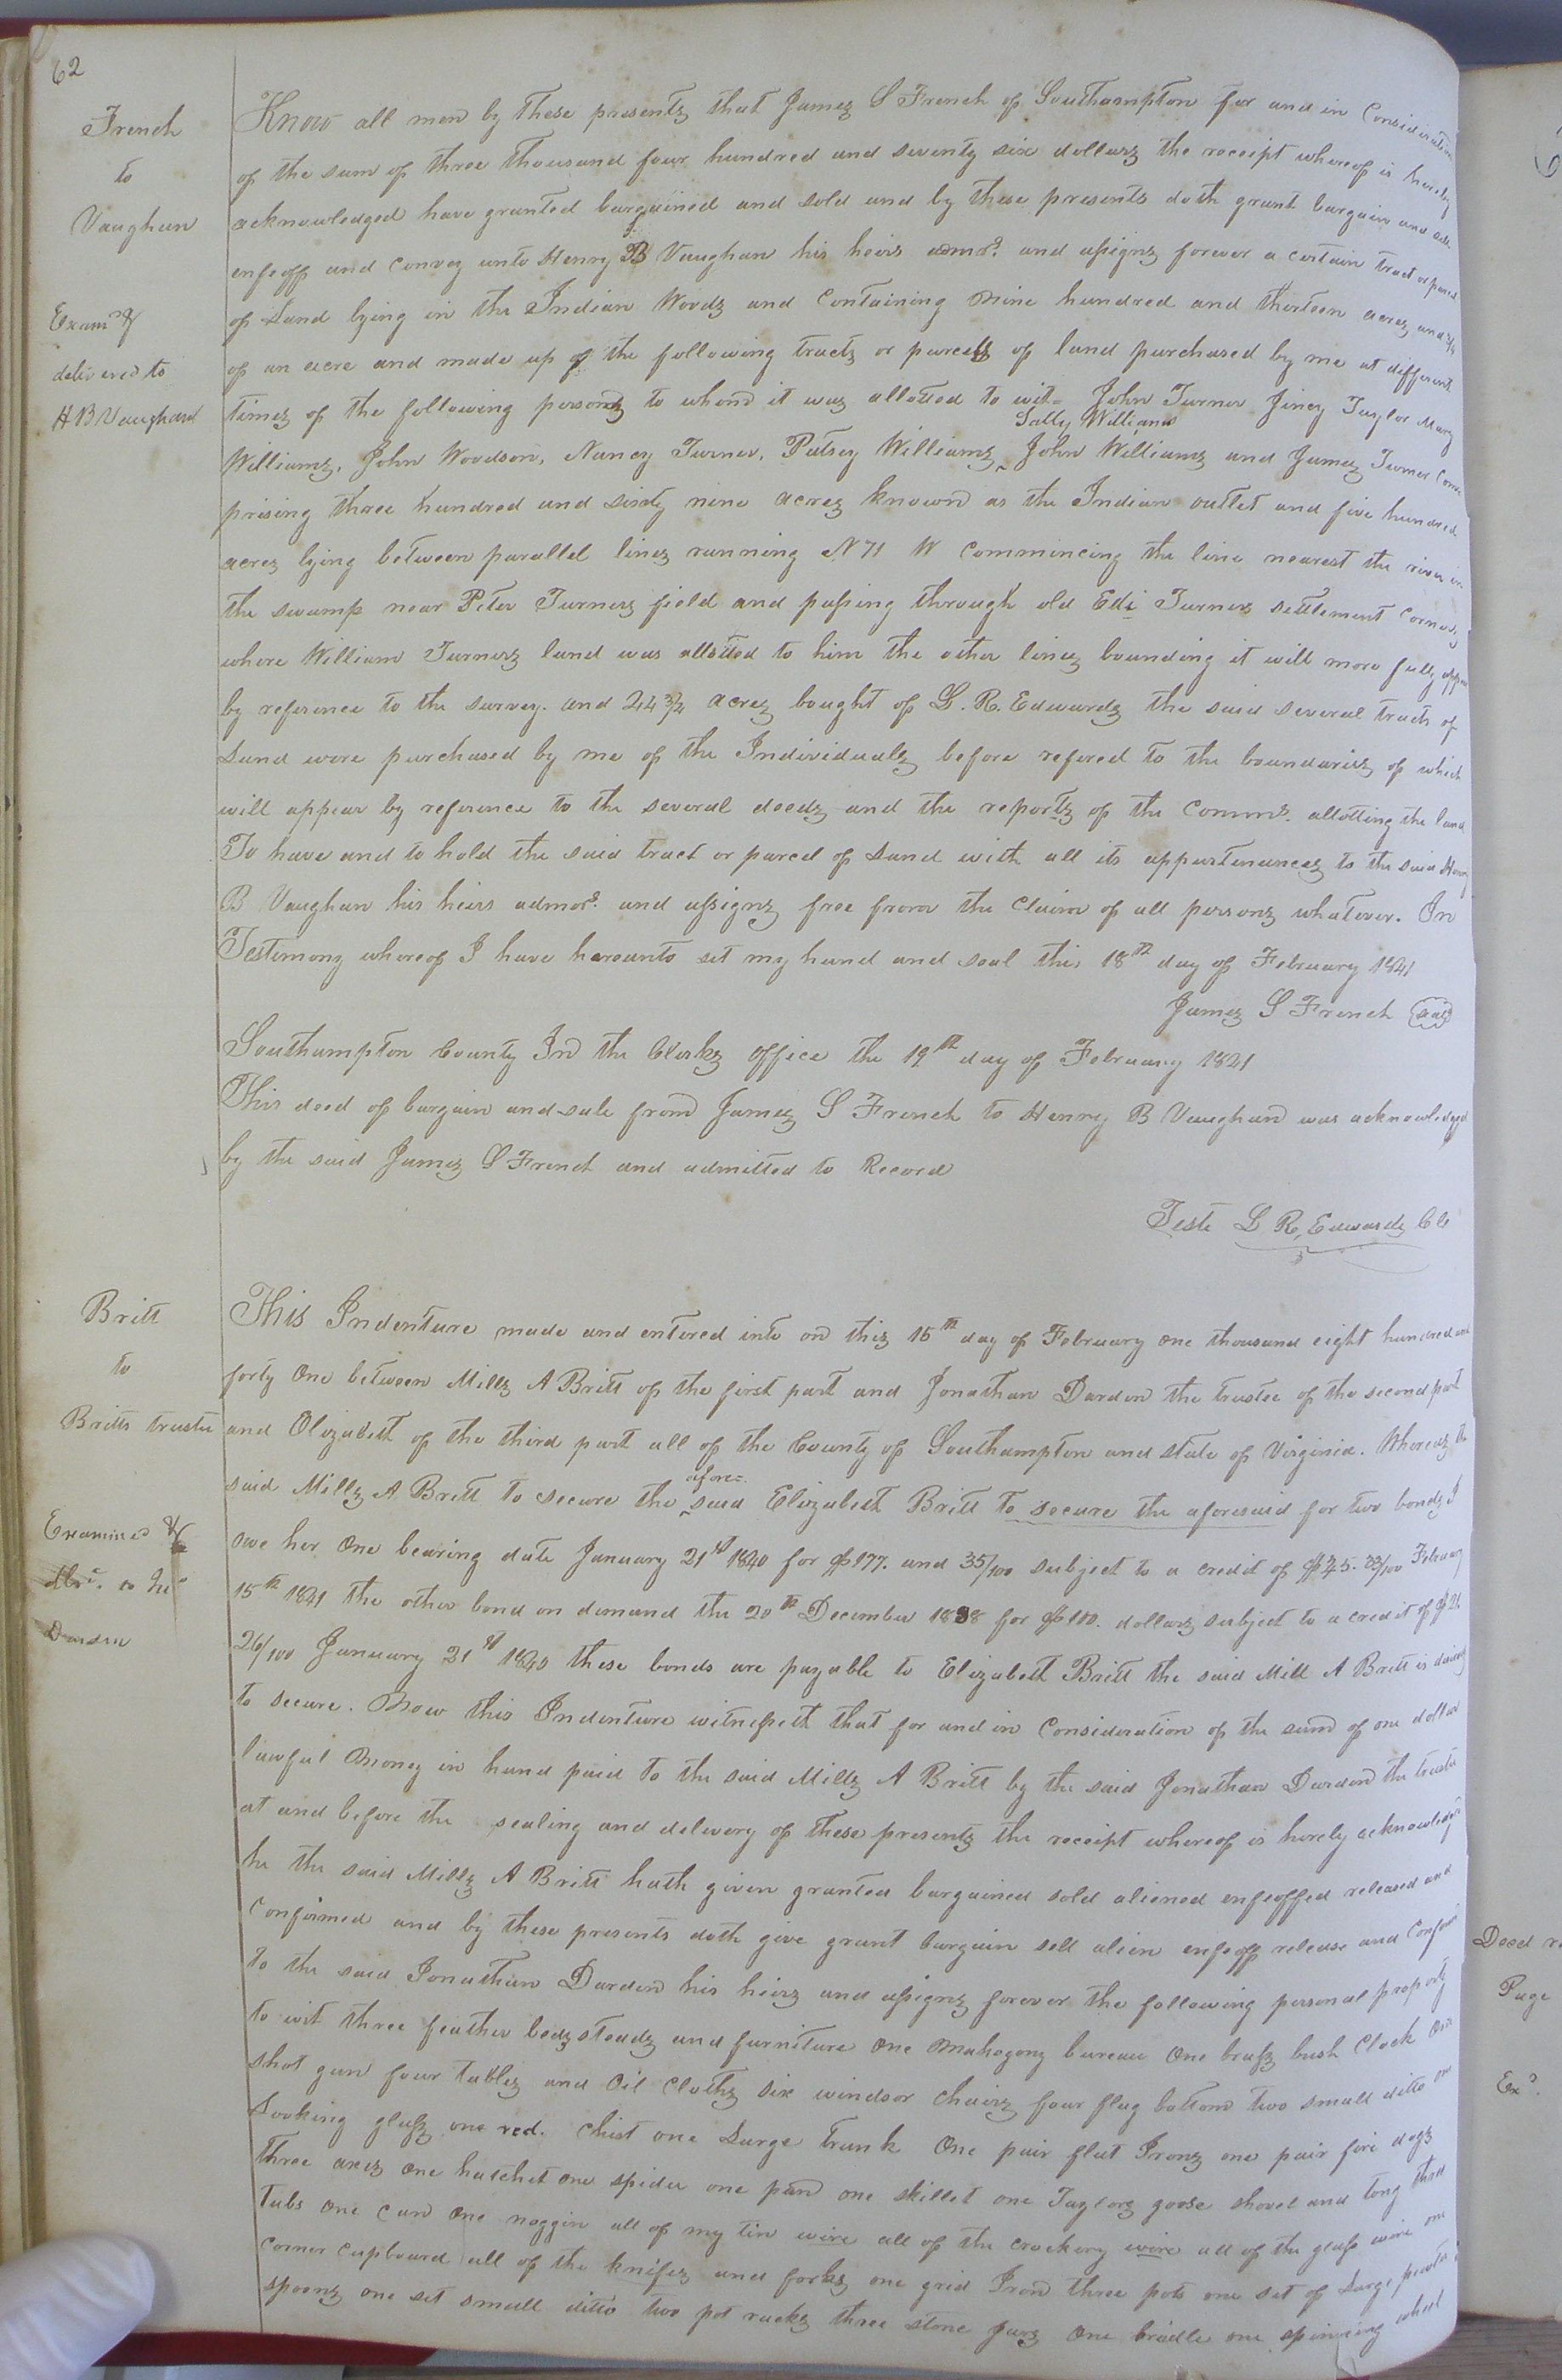 62
French
to
Vaughan
Exam.d &
delivered to
H B Vaughan
Know all men by these presents that James S French of Southampton for and in Consideration
of the sum of three thousand four hundred and seventy six dollars the receipt whereof is hereby
acknowledged have granted bargained and sold and by these presents doth grant bargain and sell
enfeoff and convey unto Henry B Vaughan his heirs admrs. and assigns forever a certain tract or parcel
of Land lying in the Indian Woods and Containing Nine hundred and thirteen acres and 3/4
of an acre and made up of the following tracts or parcells of land purchased by me at different
times of the following persons to whom it was allotted to wit. John Turner Jincy Taylor Mary
Williams, John Woodson, Nancy Turner, Patsey Williams, Sally Williams John Williams and James Turner Com
prising three hundred and sixty nine acres known as the Indian outlet and five hundred
acres lying between parallel lines running N 71 W commincing the line nearest the river in
the swamp near Peter Turners field and passing through old Edi Turners settlement corners,
where William Turners land was allotted to him the other lines bounding it will more fully appear
by reference to the survey. and 44 3/4 acres bought of L. R. Edwards the said several tracts of
Land were purchased by me of the Individuals before refered to the boundaries of which
will appear by reference to the several deeds and the reports of the Commrs. allotting the land
To have and to hold the said tract or parcel of Land with all its appurtenances to the said Henry
B Vaughan his heirs admors. and assigns free from the Claim of all persons whatever. In
Testimony whereof I have hereunto set my hand and seal this 18th day of February 1841
James S French seal
Southampton County In the Clerks office the 19th day of February 1841
This deed of bargain and sale from James S French to Henry B Vaughan was acknowledged
by the said James S French and admitted to Record
Teste L R, Edwards Clk
Britt
to
Britts trustee
Examined &
to
Darden
This Indenture made and entered into on this 15th day of February one thousand eight hundred and
forty One between Mills A Britt of the first part and Jonathan Darden the trustee of the second part
and Elizabeth of the third part all of the County of Southampton and state of Virginia. Whereas the
said Mills A Britt to secure the afore= said Elizabeth Britt to secure the aforesaid for two bonds I
owe her One bearing date January 21st 1840 for $177. and 35/100 subject to a credit of $45. 33/100 February
15th 1841 the other bond on demand the 20th December 1838 for $100. dollars subject to a credit of $21
26/100 January 21st 1840 these bonds are payable to Elizabeth Britt the said Mill A Britt is desirous
to secure. Now this Indenture witnesseth that for and in Consideration of the sum of one dollar
lawful Money in hand paid to the said Mills A Britt by the said Jonathan Darden the trustee
at and before the sealing and delivery of these presents the receipt whereof is hereby acknowledged
he the said Mills A Britt hath given granted bargained sold aliened enfeoffed released and
confirmed and by these presents doth give grant bargain sell alien enfeoff release and confirm
to the said Jonathan Darden his heirs and assigns forever the following personal property
to wit three feather beds, steads and furniture One Mahogony bureau One brass bush Clock One
shot gun four tables and Oil Cloths six windsor Chairs four flag bottom two small ditto one
Looking glass one red. Chist one Large trunk One pair flat Irons one pair fire dogs
Three axes One hatchet one spider one pan one skillet one Taylors goose shovel and tong three
Tubs One can One noggin all of my tin wire all of the crockery wire all of the glass wire one
corner cupboard all of the knifes and forks one grid Iron three pots one set of Large pewter
spoons one set small ditto two pot racks three stone Jars One bridle one spinning wheel
Deed
Page
Exd.